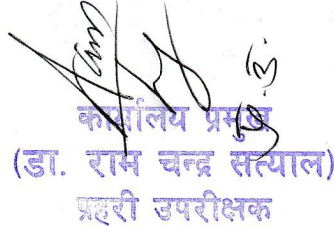 कार्यालय प्रमुख
(डा. राम चन्द्र सत्याल)
प्रहरी उपरीक्षक